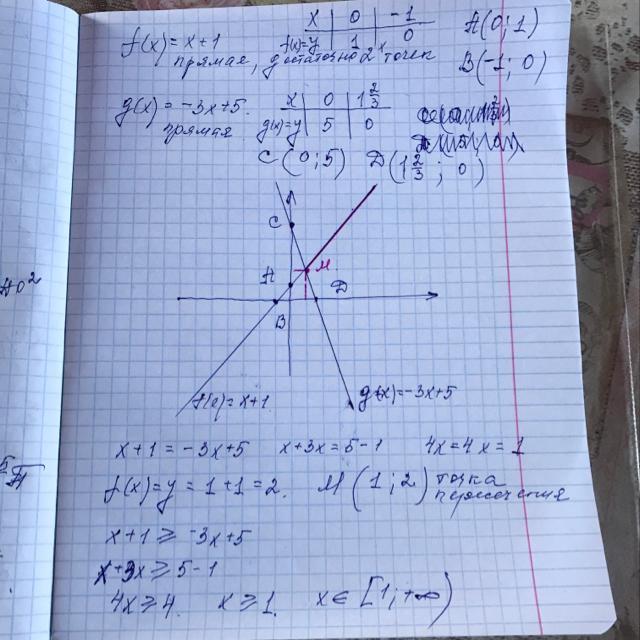 x | 0 | -1
f(x) = x+1
f(x)=y | 1 | 0
A(0;1)
прямая, достаточно 2х точек
B(-1; 0)
g(x) = -3x+5.
x | 0 | 1 2/3
прямая
g(x)=y | 5 | 0
C(0;5) D(1 2/3; 0)
C
M
A
D
B
f(0)=x+1
g(x)=-3x+5
x+1=-3x+5 x+3x=5-1 4x=4 x=1
f(x)=y=1+1=2. M(1;2) точка
пересечения
x+1≥-3x+5
x+3x≥5-1
4x≥4. x≥1. x∈[1;+∞)